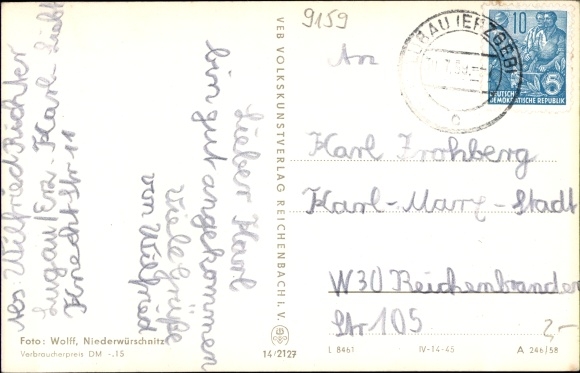 Abs: Wilfried Richter
Lugau/Erz-Karl-Liebk
Knecht Str 11
Lieber Karl
bin gut angekommen
viele Grüße
von Wilfried
Foto: Wolff, Niederwürschnitz
Verbraucherpreis DM -,15
VEB VOLKSKUNSTVERLAG REICHENBACH i. V.
14/2127
9159
An
(ERZGEB)
10
5
DEUTSCHE
DEMOKRATISCHE REPUBLIK
Karl Frohberg
Karl-Marx-Stadt
W30 Reichenbrander
Str 105
2-
L 8461 IV-14-45 A 246/58